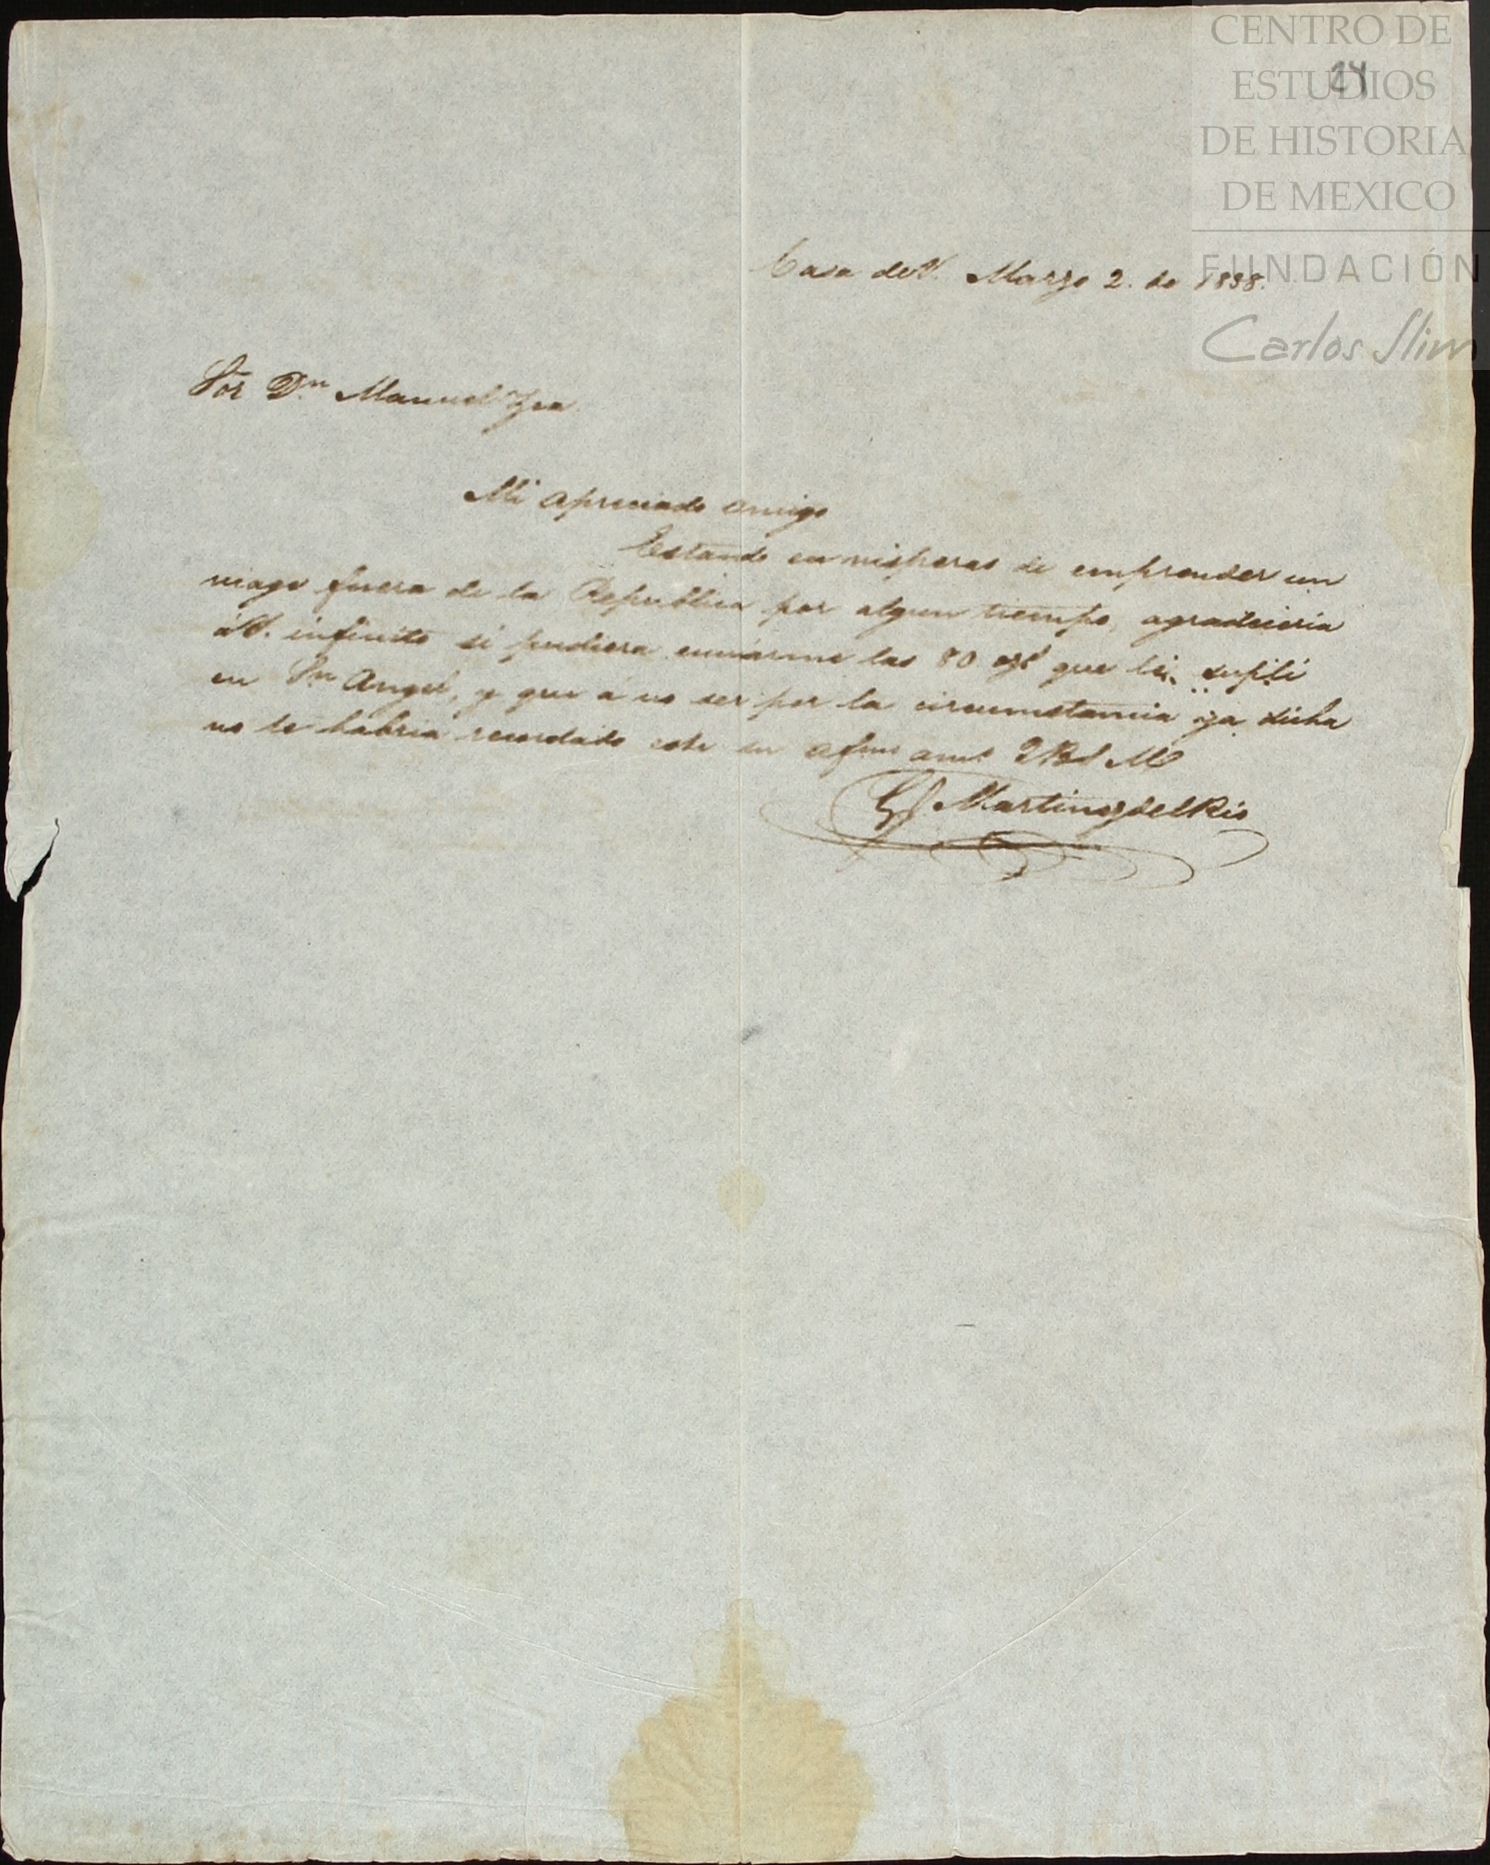 CENTRO DE
ESTUDIOS
DE HISTORIA
DE MEXICO
FUNDACIÓN
Carlos Slim
24
Casa de V. Marzo 2. de 1838.
Sor Dn. Manuel
Mi apreciado amigo
Estando en visperas de emprender un
viage fuera de la Republica por algun tiempo, agradeceria
á V. infinito si pudiera enviarme las 80 que le supli
en Sn Angel, y que á no ser por la circumstancia ya dicha
no le habria recordado este su afmo amo Q B S M
G Martinez del Rio